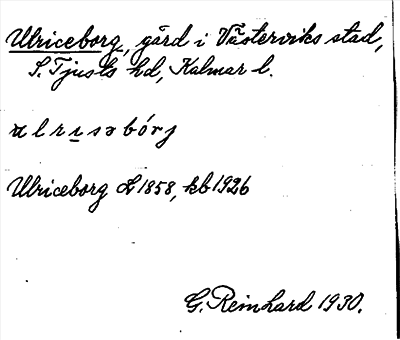 Ulriceborg, gård i Västerviks stad,
S. Tjusts hd, Kalmar l.
ulrisəbórj
Ulriceborg 1858, kb 1926
G. Reinhard 1930.